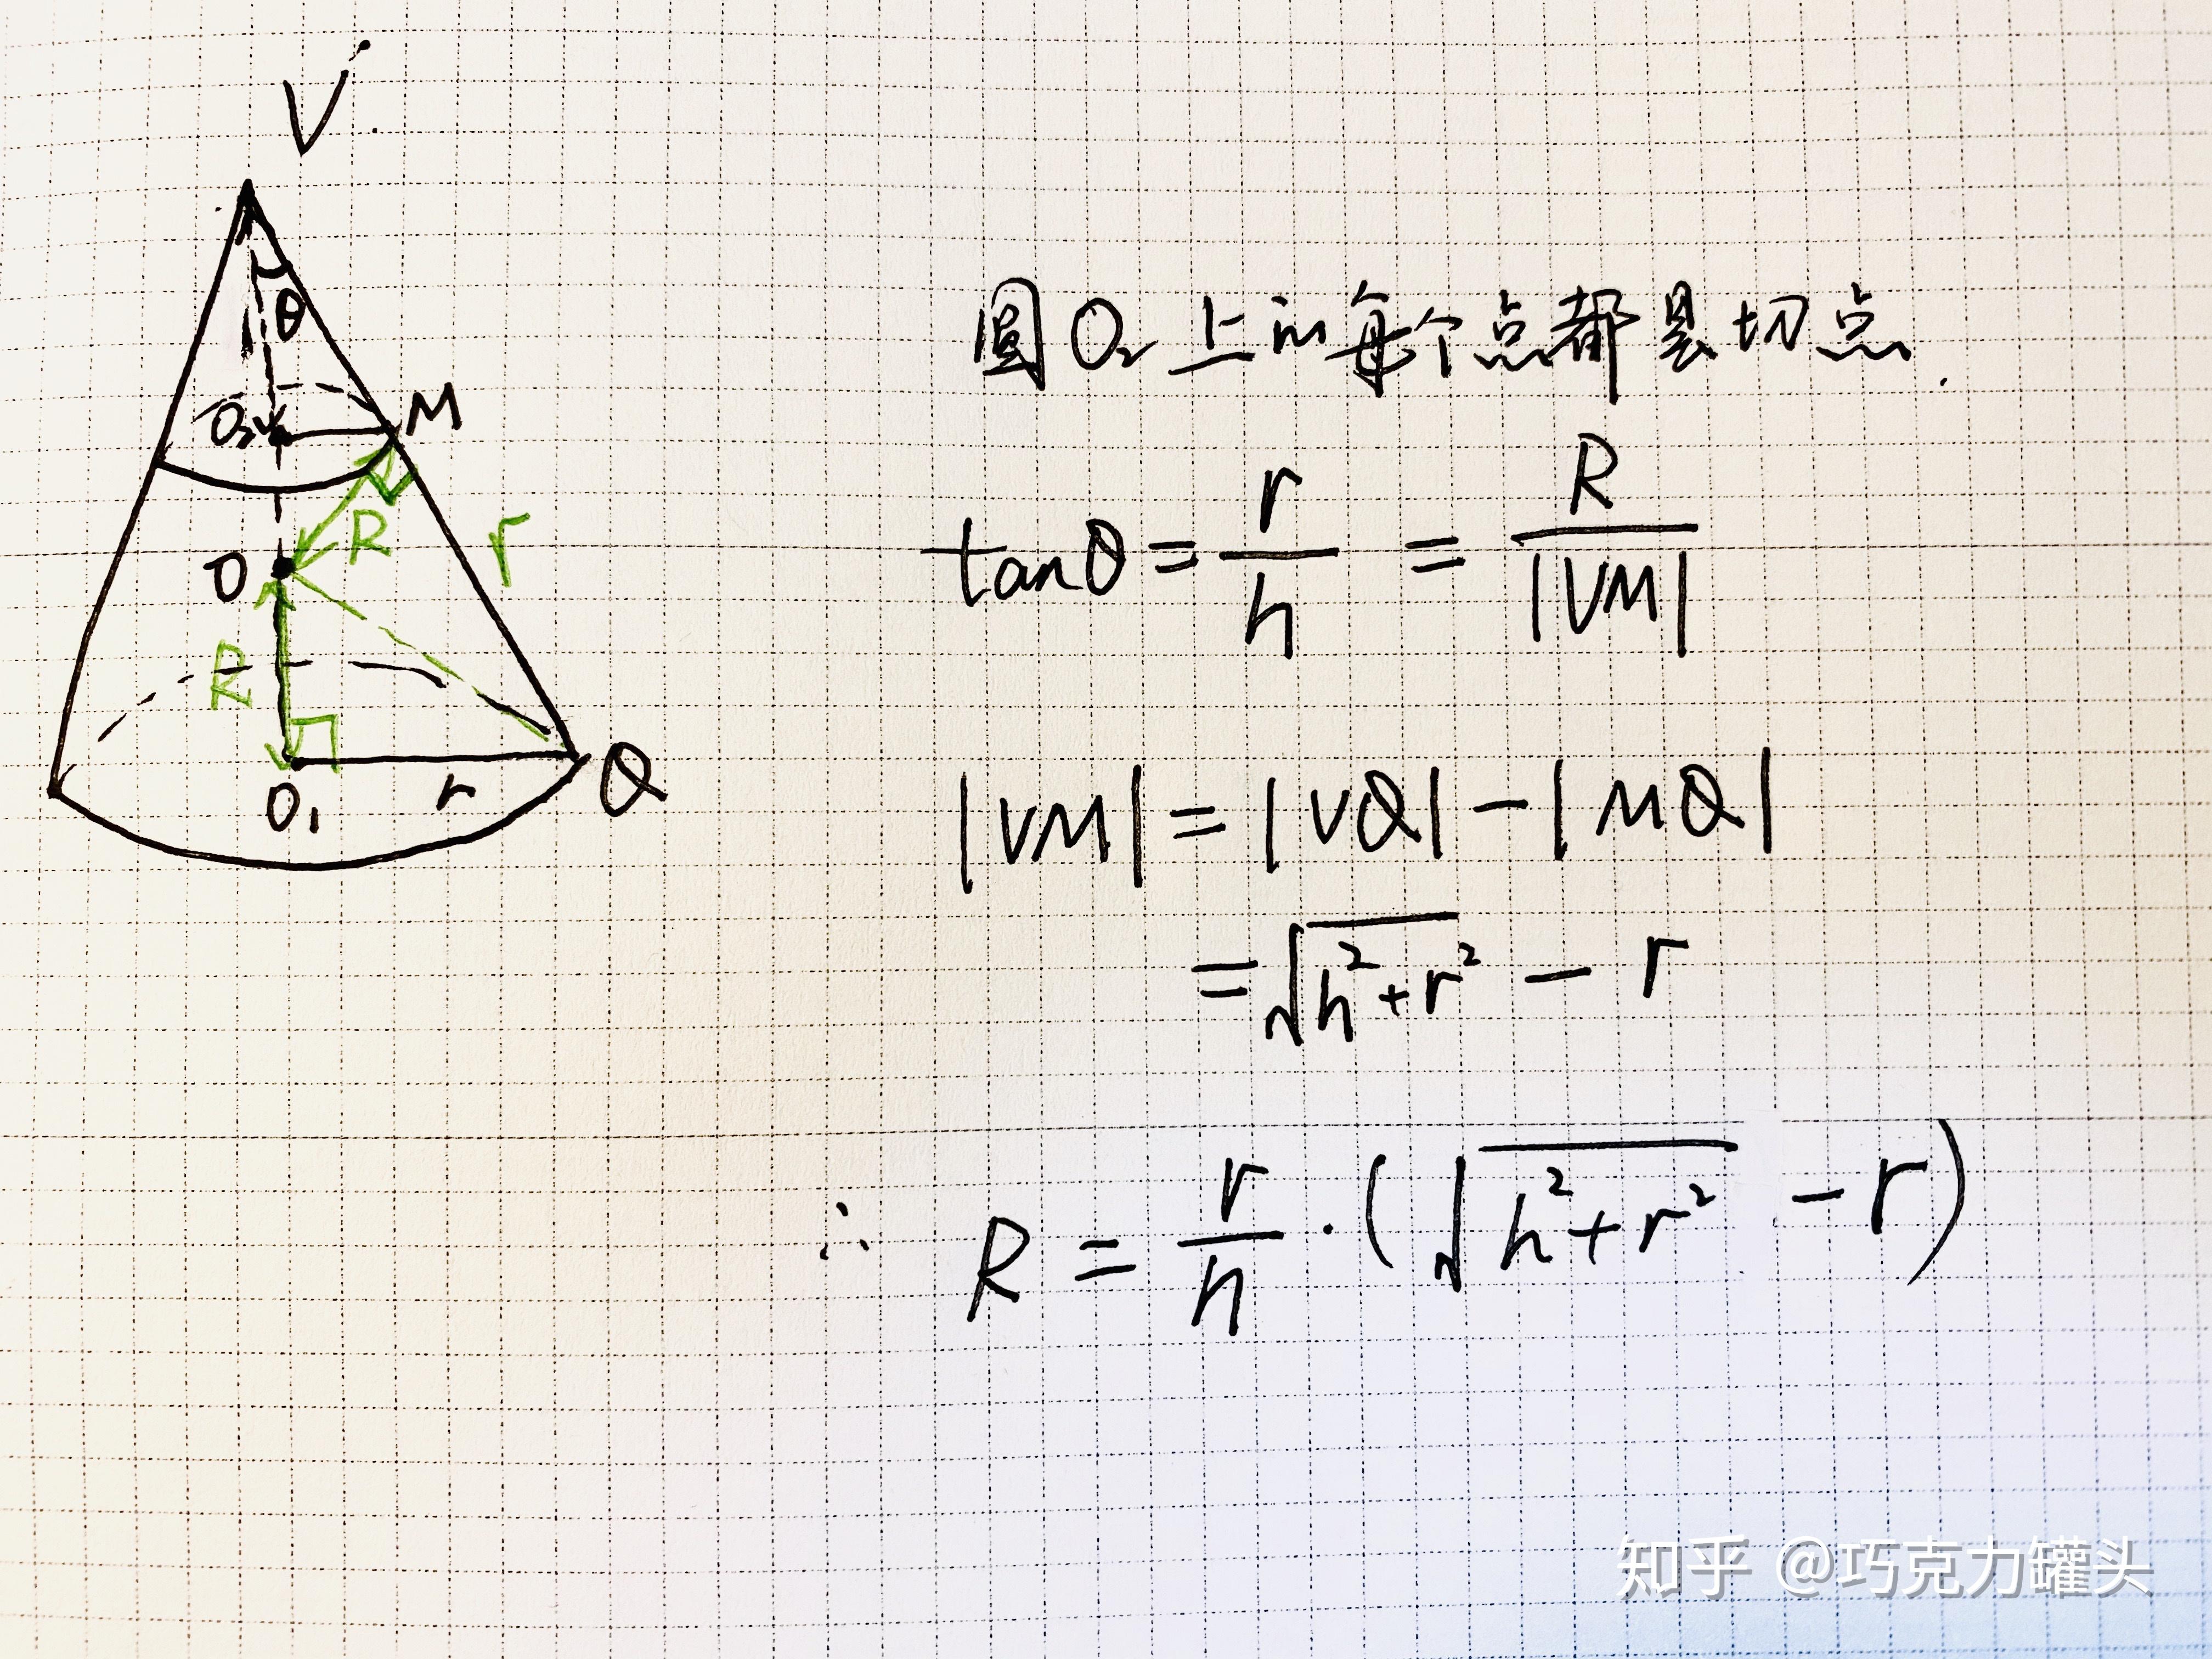 V
θ
O₂
M
R
r
O
R
O₁
r
Q
圆O₂上的每个点都是切点.
tanθ = r/h = R/|VM|
|VM| = |VQ| - |MQ|
= √(h²+r²) - r
∴ R = r/h · (√(h²+r²) - r)
知乎 @巧克力罐头